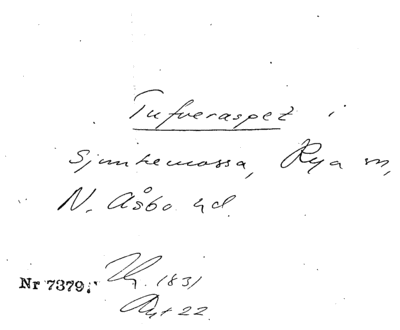 Tufveraspet i
Sjunkemossa, Rya sn,
N. Åsbo hd.
Nr 7379. 1831
22